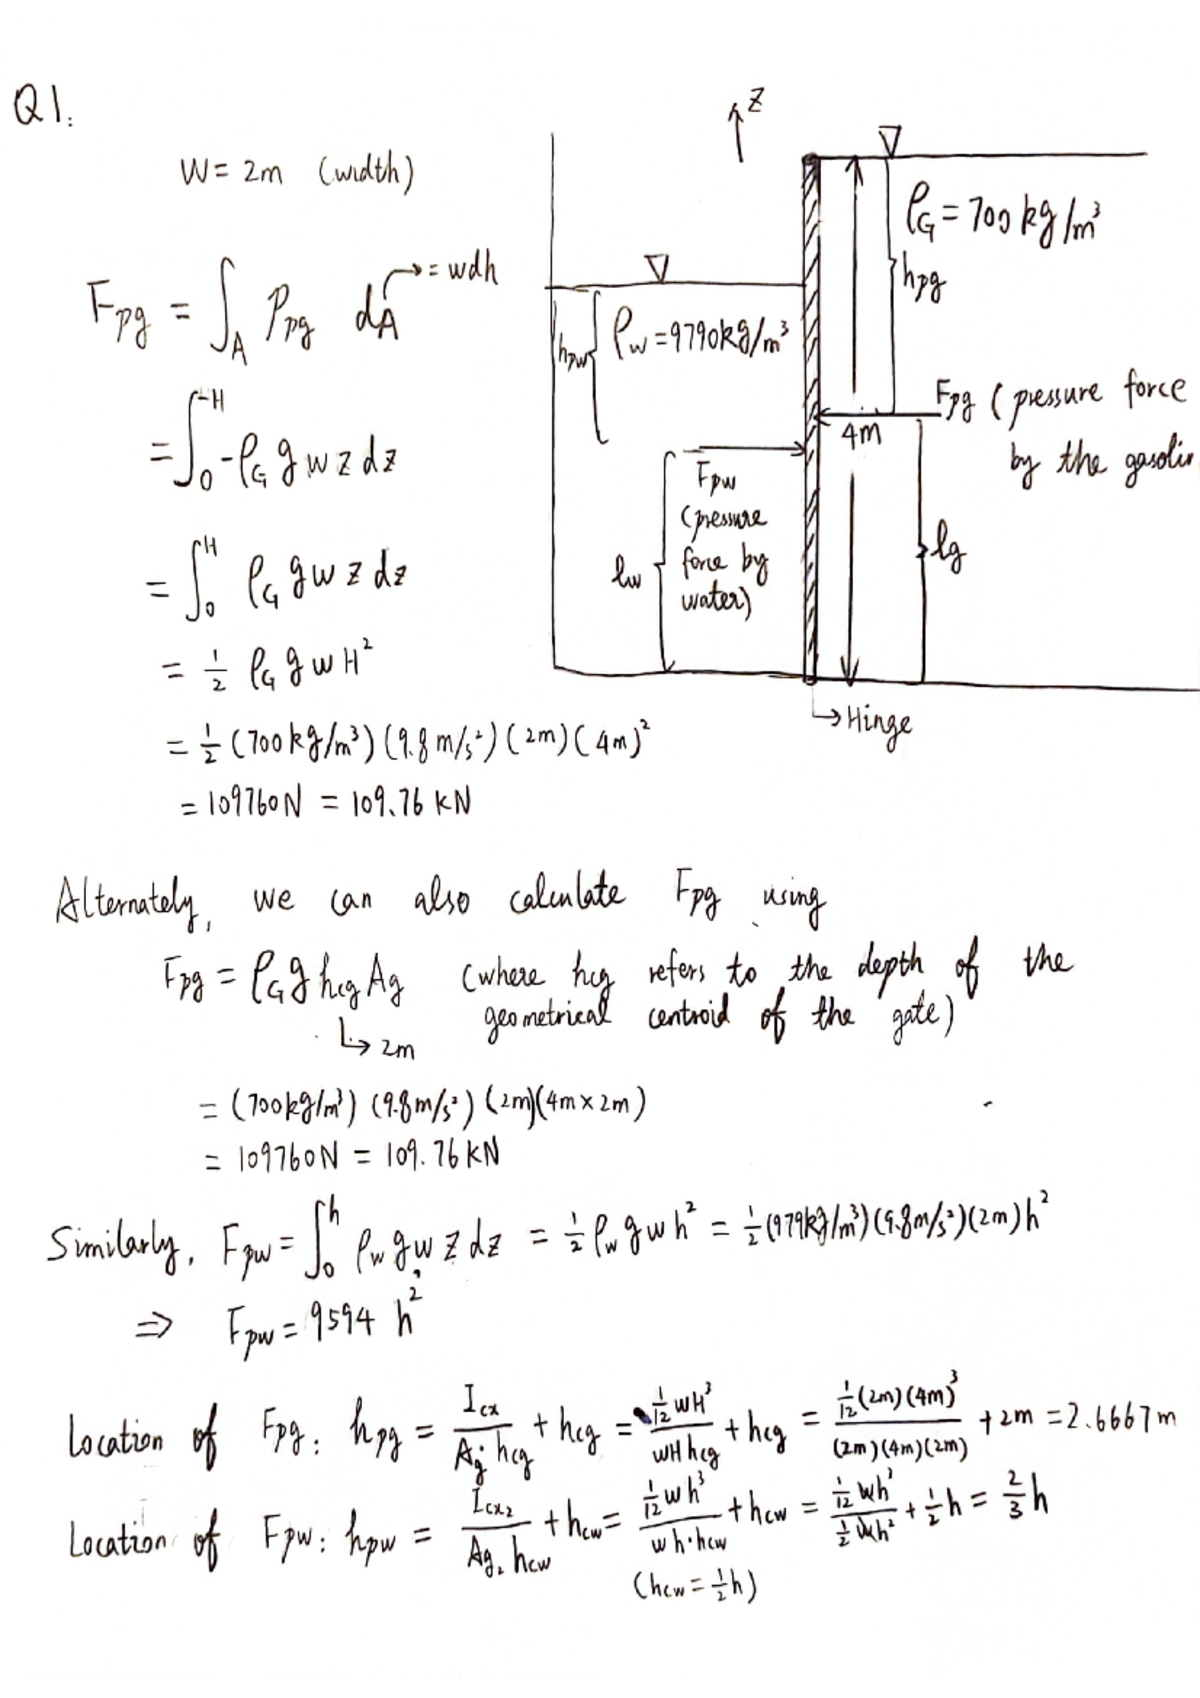 Q1.
W = 2m (width)
F_pg = ∫_A P_pg dA → = wdh
= ∫_0^-H -ρ_G g w z dz
= ∫_0^H ρ_G g w z dz
= 1/2 ρ_G g w H²
= 1/2 (700 kg/m³) (9.8 m/s²) (2m) (4m)²
= 109760N = 109.76 KN
z
ρ_G = 700 kg/m³
h_pg
ρ_w = 9790kg/m³
h_pw
F_pg (pressure force
by the
4m
F_pw
(pressure
force by
water)
l_w
l_g
→ Hinge
Alternately, we can also calculate F_pg using
F_pg = ρ_G g h_cg A_g (where h_cg refers to the depth of the
geometrical centroid of the gate)
↳ 2m
= (700kg/m³) (9.8m/s²) (2m)(4m × 2m)
= 109760N = 109.76 KN
Similarly, F_pw = ∫_0^h ρ_w g w z dz = 1/2 ρ_w g w h² = 1/2 (979kg/m³)(9.8m/s²)(2m)h²
⇒ F_pw = 9594 h²
Location of F_pg: h_pg = I_cx / (A_g · h_cg) + h_cg = (1/12 wH³) / (wH h_cg) + h_cg = (1/12 (2m)(4m)³) / ((2m)(4m)(2m)) + 2m = 2.6667m
Location of F_pw: h_pw = I_cx2 / (A_g2 h_cw) + h_cw = (1/12 wh³) / (wh·h_cw) + h_cw = (1/12 wh³) / (1/2 wh²) + 1/2 h = 2/3 h
(h_cw = 1/2 h)